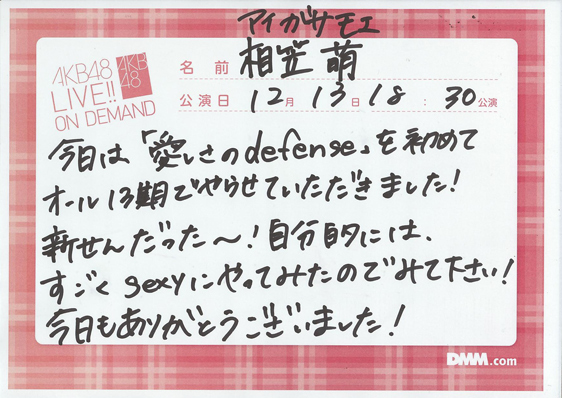 アイガサモエ
AKB48
LIVE!!
ON DEMAND
AKB
48
名前 相笠 萌
公演日 12月 13日 18:30公演
今日は「愛しさのdefense」を初めて
オール13期でやらせていただきました!
新せんだった〜!自分的には、
すごくsexyにやってみたのでみて下さい!
今日もありがとうございました!
DMM.com